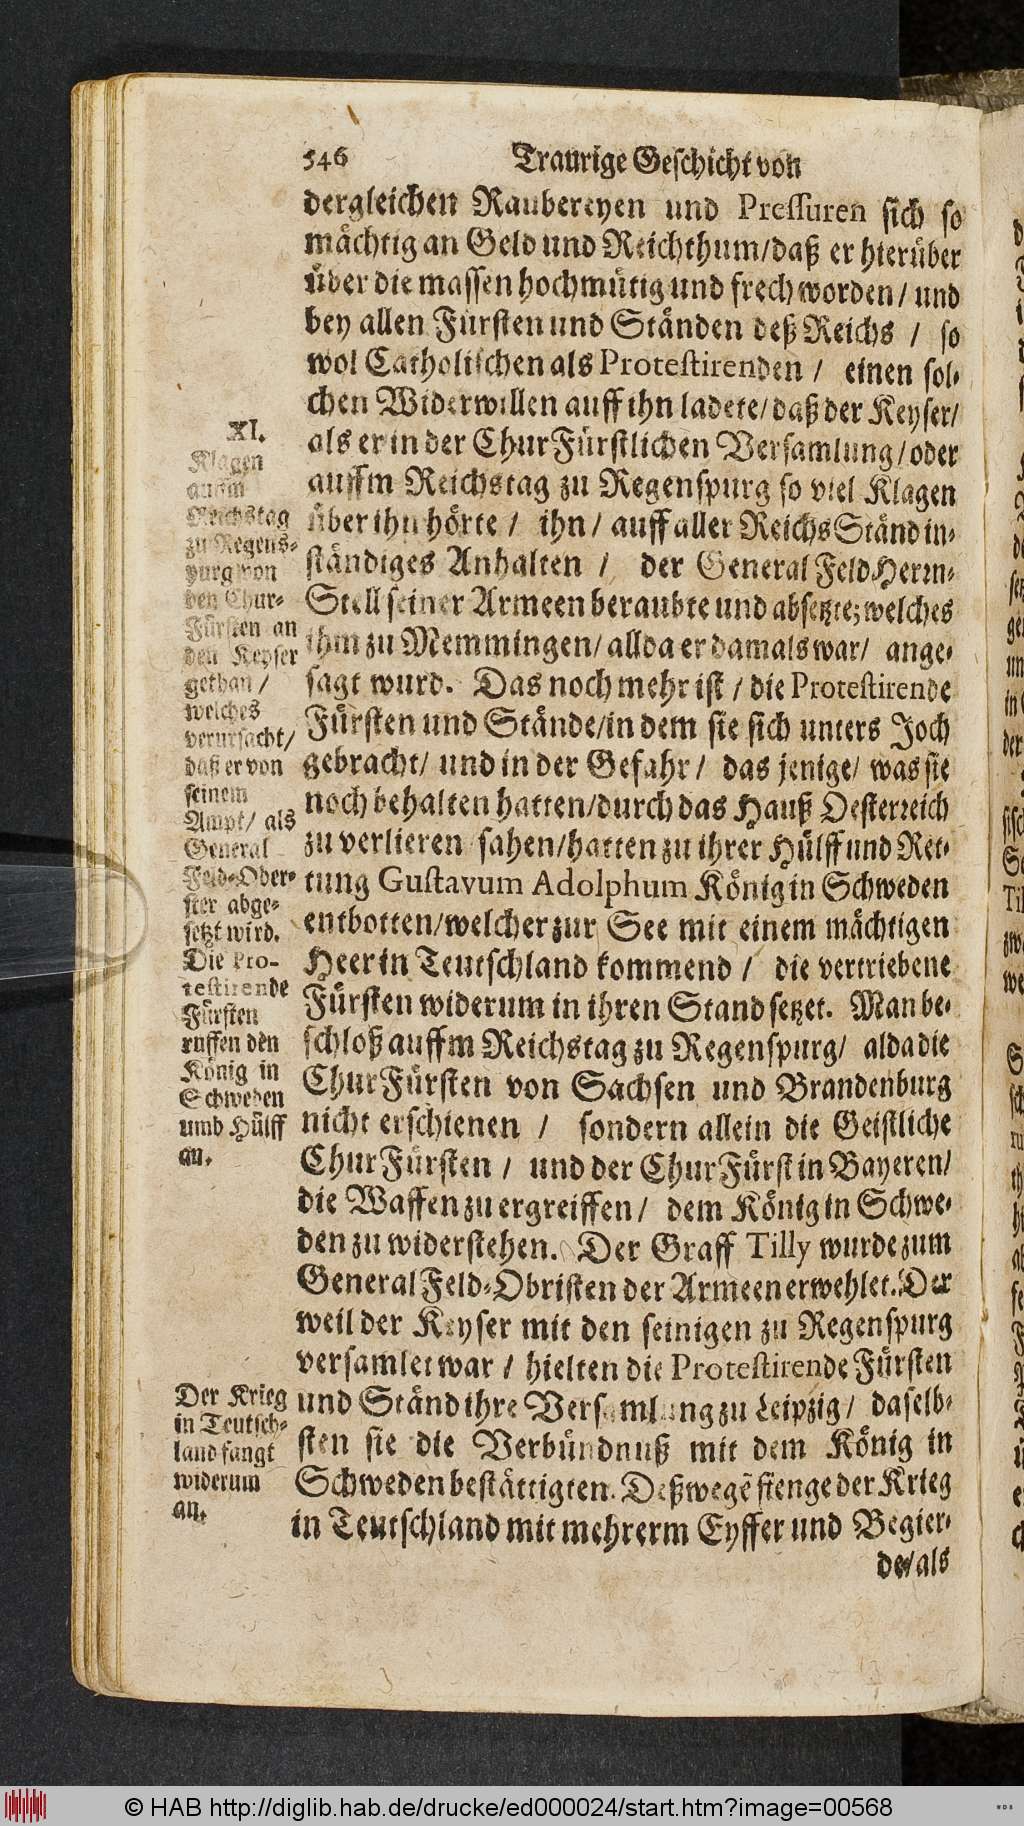 546 Traurige Geschicht von
dergleichen Raubereyen und Pressuren sich so
mächtig an Geld und Reichthum/daß er hierüber
über die massen hochmütig und frech worden/ und
bey allen Fürsten und Ständen deß Reichs / so
wol Catholischen als Protestirenden / einen sol-
chen Widerwillen auff ihn ladete/daß der Keyser/
als er in der ChurFürstlichen Versamlung/oder
auffm Reichstag zu Regenspurg so viel Klagen
über ihn hörte / ihn/ auff aller ReichsStänd in-
ständiges Anhalten / der General FeldHerrn-
Stell seiner Armeen beraubte und absetzte; welches
ihm zu Memmingen/ allda er damals war/ ange-
sagt wurd. Das noch mehr ist / die Protestirende
Fürsten und Stände/in dem sie sich unters Joch
gebracht/ und in der Gefahr/ das jenige/ was sie
noch behalten hatten/durch das Hauß Oesterreich
zu verlieren sahen/hatten zu ihrer Hülff und Ret-
tung Gustavum Adolphum König in Schweden
entbotten/welcher zur See mit einem mächtigen
Heer in Teutschland kommend / die vertriebene
Fürsten widerum in ihren Stand setzet. Man be-
schloß auffm Reichstag zu Regenspurg/ alda die
ChurFürsten von Sachsen und Brandenburg
nicht erschienen / sondern allein die Geistliche
ChurFürsten / und der ChurFürst in Bayeren/
die Waffen zu ergreiffen/ dem König in Schwe-
den zu widerstehen. Der Graff Tilly wurde zum
General Feld-Obristen der Armeen erwehlet. Der
weil der Keyser mit den seinigen zu Regenspurg
versamlet war / hielten die Protestirende Fürsten
und Ständ ihre Versamlung zu Leipzig/ daselb-
sten sie die Verbündnuß mit dem König in
Schweden bestättigten. Deßwegẽ fienge der Krieg
in Teutschland mit mehrerm Eyffer und Begier-
de/als
XI.
Klagen
auffm
Reichstag
zu Regens-
purg von
den Chur-
Fürsten an
den Keyser
gethan /
welches
verursacht/
daß er von
seinem
Ampt/ als
General
Feld-Ober-
ster abge-
setzt wird.
Die Pro-
testirende
Fürsten
ruffen den
König in
Schweden
umb Hülff
an.
Der Krieg
in Teutsch-
land fangt
widerum
an.
© HAB http://diglib.hab.de/drucke/ed000024/start.htm?image=00568